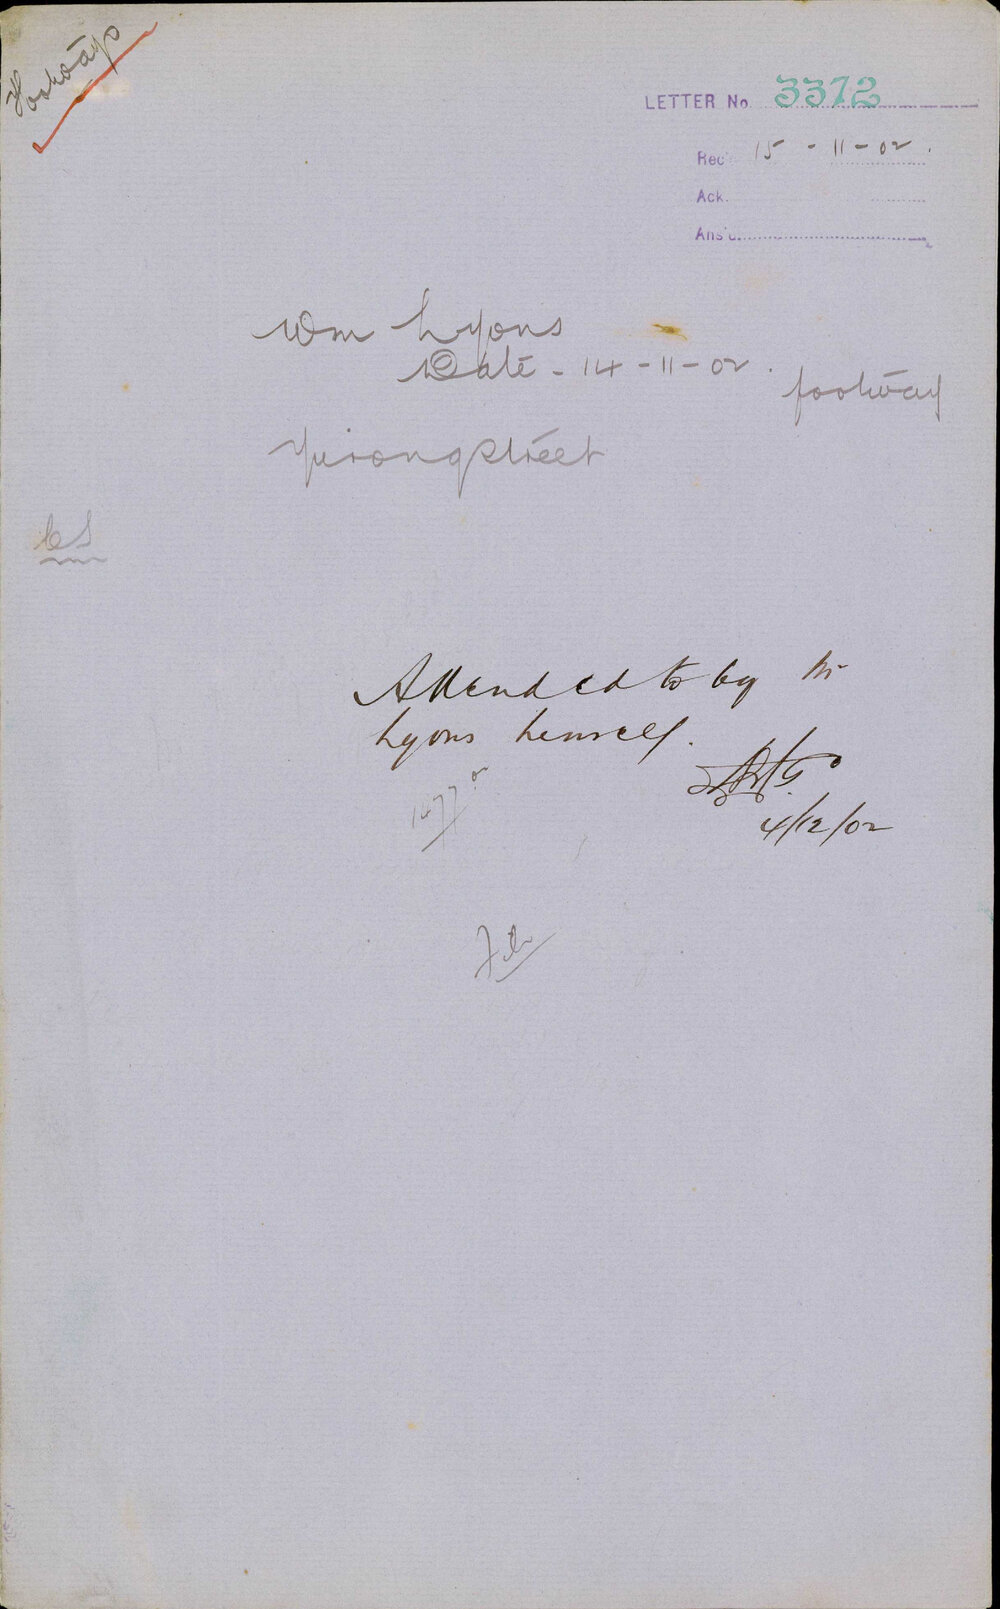 Footways
LETTER No 3372
Rec 15-11-02.
Ack.
Ans'd.
Wm Lyons
Date - 14-11-02.
footway
Yurong Street
CS
Attended to by Mr
Lyons himself.
4/12/02
1477 02
File